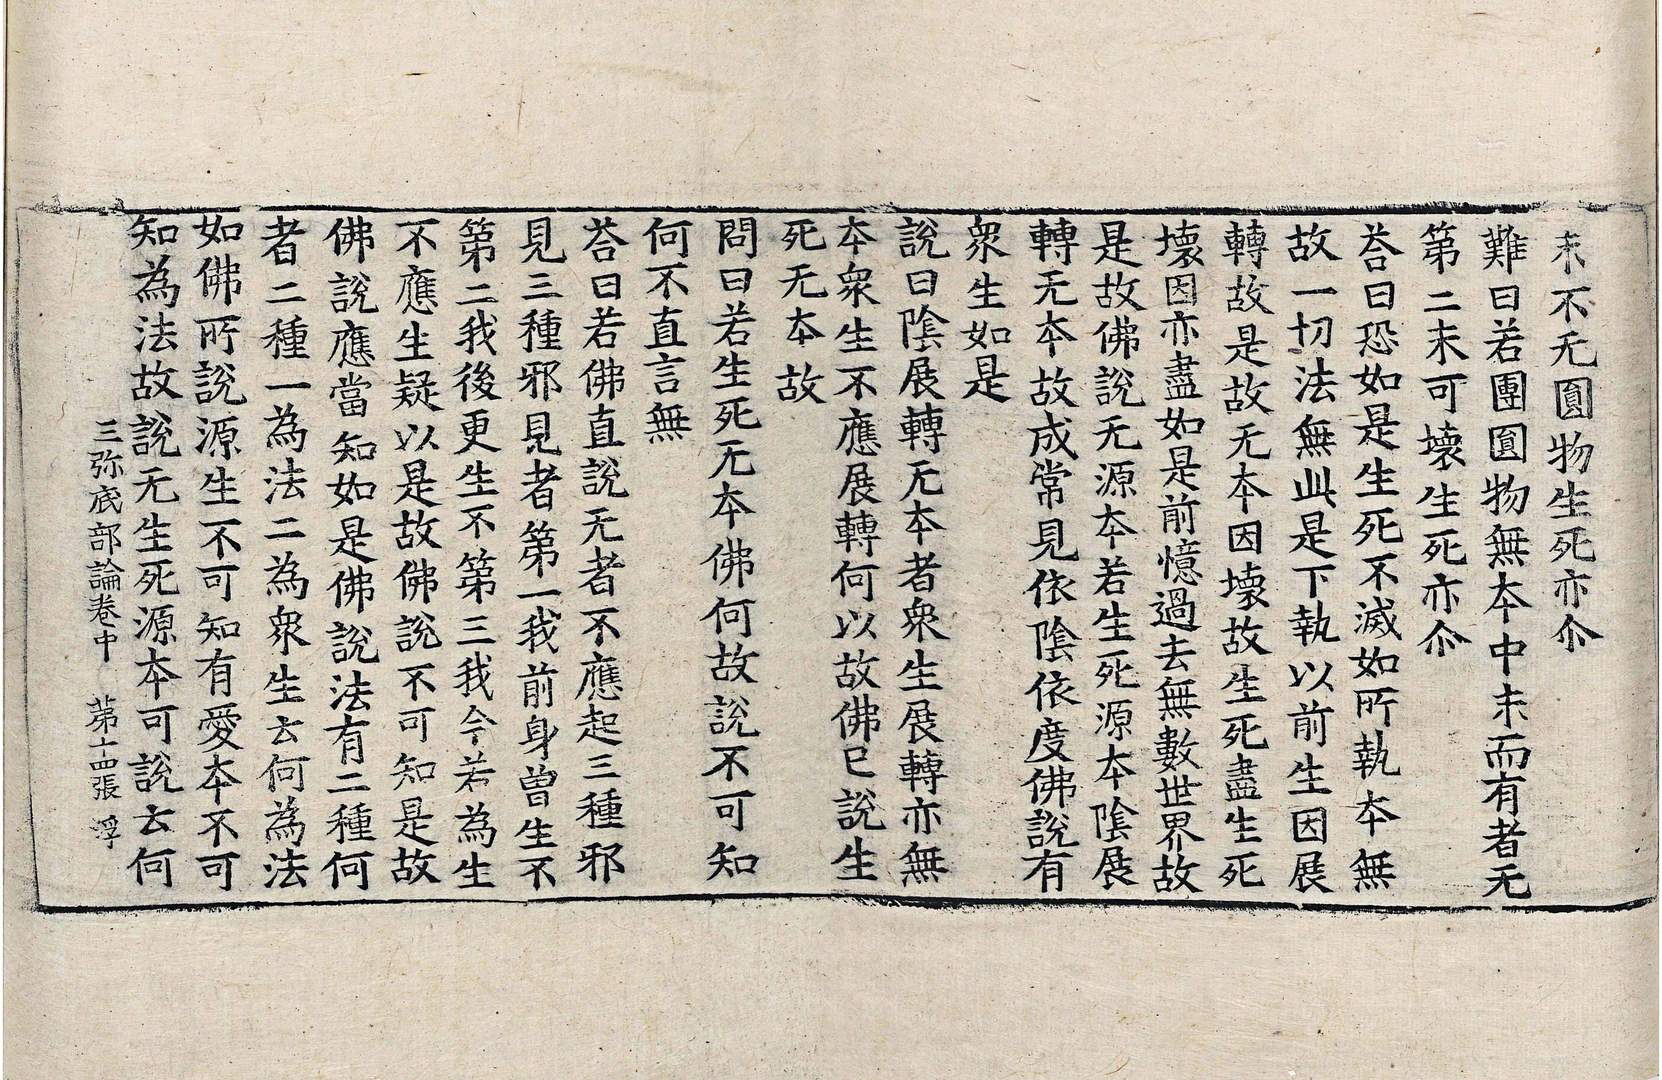 末不无圎物生死亦尒
難曰若團圎物無本中末而有者无
第二末可壞生死亦尒
荅曰恐如是生死不滅如所執本無
故一切法無此是下執以前生因展
轉故是故无本因壞故生死盡生死
壞因亦盡如是前憶過去無數世界故
是故佛說无源本若生死源本陰展
轉无本故成常見依陰依度佛說有
衆生如是
說曰陰展轉无本者衆生展轉亦無
本衆生不應展轉何以故佛已說生
死无本故
問曰若生死无本佛何故說不可知
何不直言無
荅曰若佛直說无者不應起三種邪
見三種邪見者第一我前身曾生不
第二我後更生不第三我今若為生
不應生疑以是故佛說不可知是故
佛說應當知如是佛說法有二種何
者二種一為法二為衆生云何為法
如佛所說源生不可知有愛本不可
知為法故說无生死源本可說云何
三弥底部論卷中 苐十四張 浮